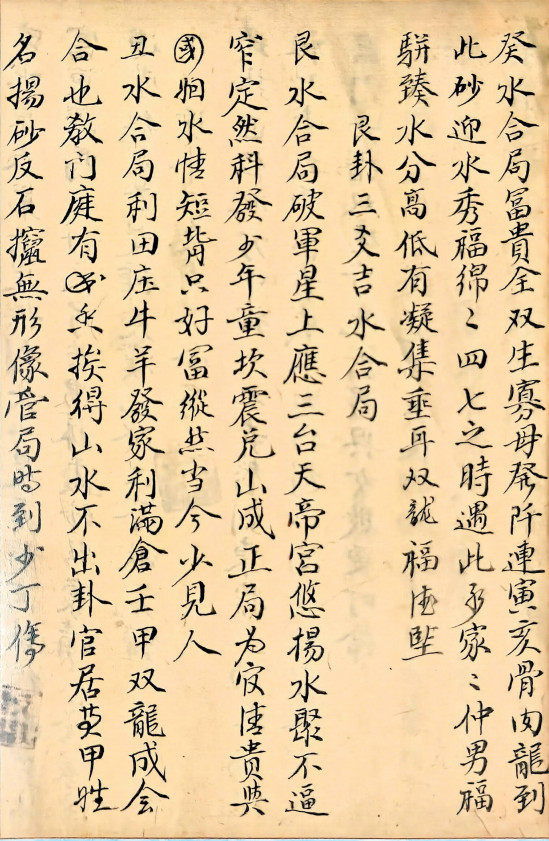 癸水合局冨貴全双生寡母發阡連寅亥骨肉龍到
此砂迎水秀福綿〻四七之時遇此永家〻仲男福
駢臻水分高低有凝集垂耳双龍福徳堅
艮卦三爻吉水合局
艮水合局破軍星上應三台天帝宮悠揚水聚不逼
窄定然科發少年童坎震兌山成正局为官清貴與
國姻水情短背只好冨縱然当今少見人
丑水合局利田庄牛羊發家利滿倉壬甲双龍成会
合也教门庭有挨得山水不出卦官居黄甲姓
名揚砂反石攛無形像管局時到少丁傷